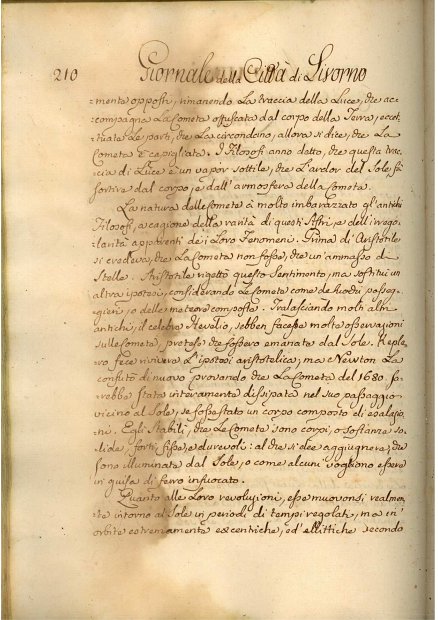 210 Giornale della Città di Livorno
mente opposti, rimanendo la traccia della Luce, che ac=
compagna la Cometa offuscata dal corpo della Terra, eccet=
tuate le parti, che la circondano, allora si dice, che la
Cometa è capigliata. I Filosofi anno detto, che questa trac=
cia di Luce è un vapor sottile, che l'ardor del Sole, fà
sortire dal corpo, e dall'atmosfera della Cometa.
La natura delle Comete à molto imbarazzato gl'antichi
Filosofi, a cagione della rarità di questi Astri, e dell'irrego=
larità apparenti dei loro Fenomeni. Prima di Aristotile
si credeva, che la Cometa non fosse, che un'ammasso di
Stelle. Aristotile rigettò questo sentimento, ma sostituì un
altra ipotesi, considerando le Comete come de fuochi passeg=
gieri, o delle meteore composte. Tralasciando molti altri
antichi, il celebre Hevelio, sebben facesse molte osservazioni
sulle Comete, pretese che fossero emanate dal Sole. Keple=
ro fece rivivere l'ipotesi aristotelica; ma Newton la
confutò di nuovo provando che la Cometa del 1680. sa=
rebbe stata interamente dissipata nel suo passaggio
vicino al Sole, se fosse stato un corpo composto di esalazio=
ni. Egli stabilì, che le Comete sono corpi, o sostanze so=
lide, forti, fisse, e durevoli: al che si dee aggiugnere, che
sono illuminate dal Sole, o come alcuni vogliono essere
in guisa di ferro infuocato.
Quanto alle loro revoluzioni, esse muovonsi realmen=
te intorno al Sole in periodi di tempi regolati, ma in
orbite estremamente eccentriche, ed'ellittiche secondo